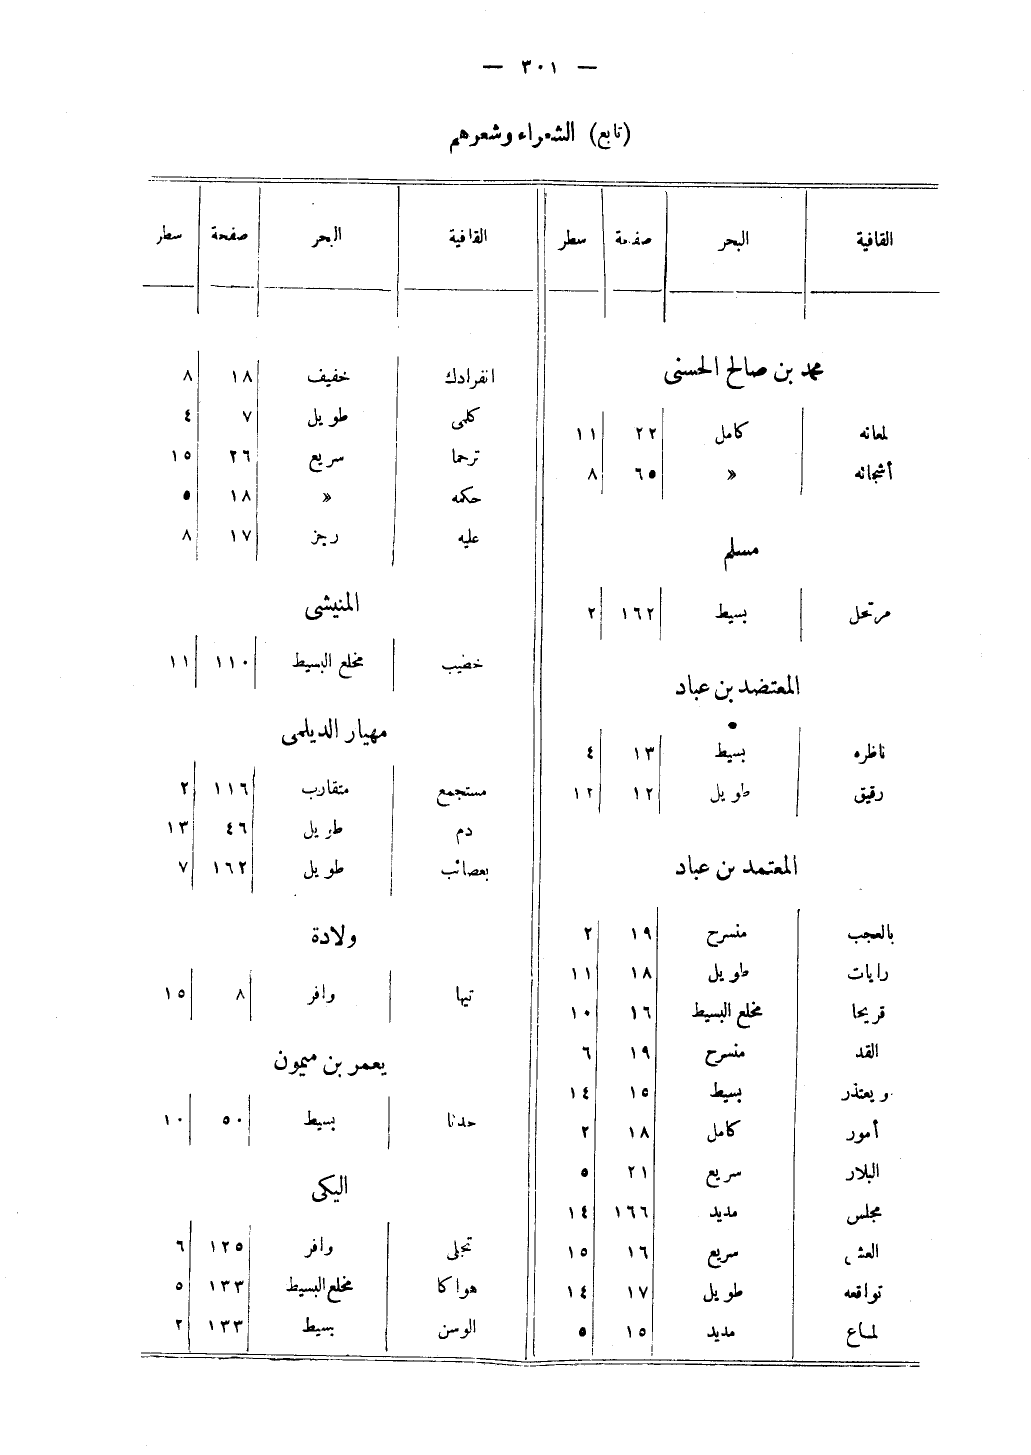 — ٣٠١ —
(تابع) الشعراء وشعرهم
القافية البحر صفحة سطر
محمد بن صالح الحسنى
لمعانه كامل ٢٢ ١١
أشجانه » ٦٥ ٨
مسلم
مرتحل بسيط ١٦٢ ٢
المعتضد بن عباد
ناظره بسيط ١٣ ٤
رقيق طويل ١٢ ١٢
المعتمد بن عباد
بالعجب منسرح ١٩ ٢
رايات طويل ١٨ ١١
قريحا مخلع البسيط ١٦ ١٠
القد منسرح ١٩ ٦
ويعتذر بسيط ١٥ ١٤
أمور كامل ١٨ ٢
البلار سريع ٢١ ٥
مجلس مديد ١٦٦ ١٤
العش سريع ١٦ ١٥
تواقعه طويل ١٧ ١٤
لماع مديد ١٥ ٥
القافية البحر صفحة سطر
انفرادك خفيف ١٨ ٨
كلمى طويل ٧ ٤
ترحما سريع ٢٦ ١٥
حكمه » ١٨ ٥
عليه رجز ١٧ ٨
المنيشى
خضيب مخلع البسيط ١١٠ ١١
مهيار الديلمى
مستجمع متقارب ١١٦ ٢
دم طويل ٤٦ ١٣
بعصائب طويل ١٦٢ ٧
ولادة
تيها وافر ٨ ١٥
يعمر بن ميمون
حدنا بسيط ٥٠ ١٠
اليكى
تجلى وافر ١٢٥ ٦
هواكا مخلع البسيط ١٣٣ ٥
الوسن بسيط ١٣٣ ٢